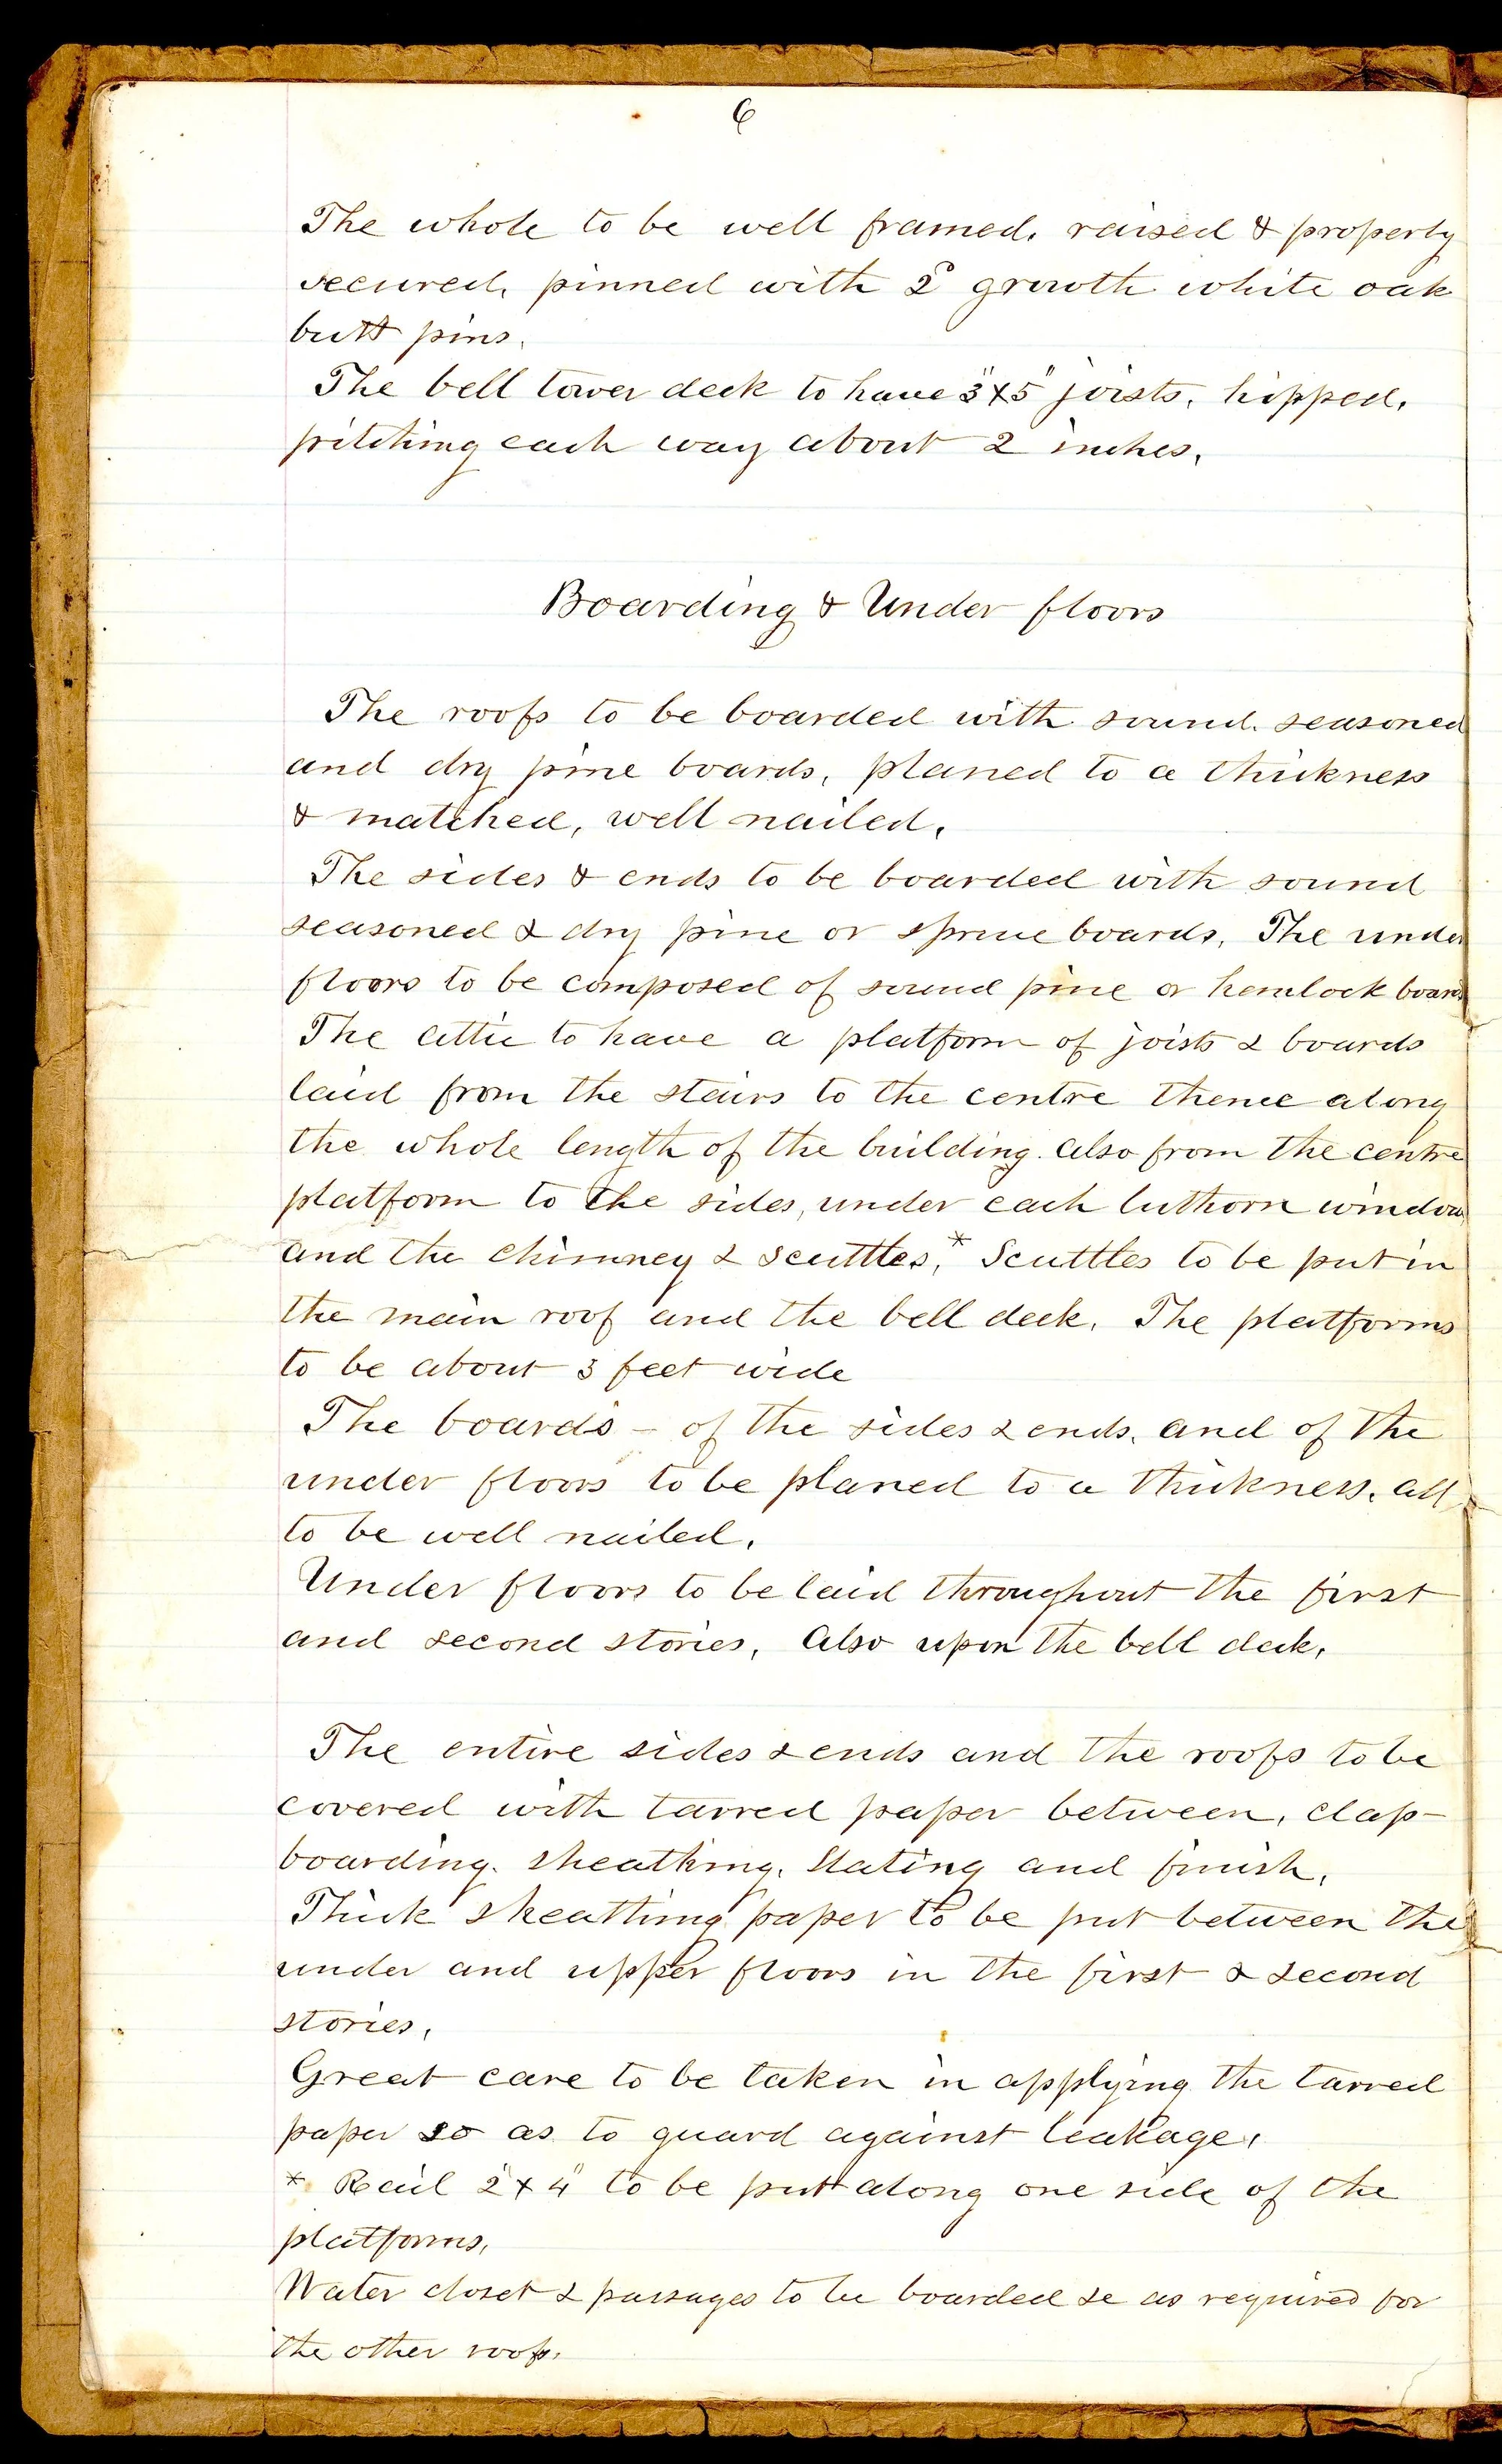 6
The whole to be well framed, raised & properly
secured, pinned with 2d growth white oak
butt pins.
The bell tower deck to have 3"x5" joists, hipped,
pitching each way about 2 inches.
Boarding & Under floors
The roofs to be boarded with sound, seasoned
and dry pine boards, planed to a thickness
& matched, well nailed.
The sides & ends to be boarded with sound
seasoned & dry pine or spruce boards. The under
floors to be composed of sound pine or hemlock boards
The attic to have a platform of joists & boards
laid from the stairs to the centre thence along
the whole length of the building. also from the centre
platform to the sides, under each luthorn window
and the chimney & scuttles.* Scuttles to be put in
the main roof and the bell deck. The platforms
to be about 3 feet wide
The boards - of the sides & ends, and of the
under floors to be planed to a thickness, all
to be well nailed.
Under floors to be laid throughout the first
and second stories, also upon the bell deck.
The entire sides & ends and the roofs to be
covered with tarred paper between, clap-
boarding, sheathing, slating and finish.
Thick sheathing paper to be put between the
under and upper floors in the first & second
stories.
Great care to be taken in applying the tarred
paper so as to guard against leakage.
* Rail 2"x4" to be put along one side of the
platforms.
Water closet & passages to be boarded &c as required for
the other roofs.